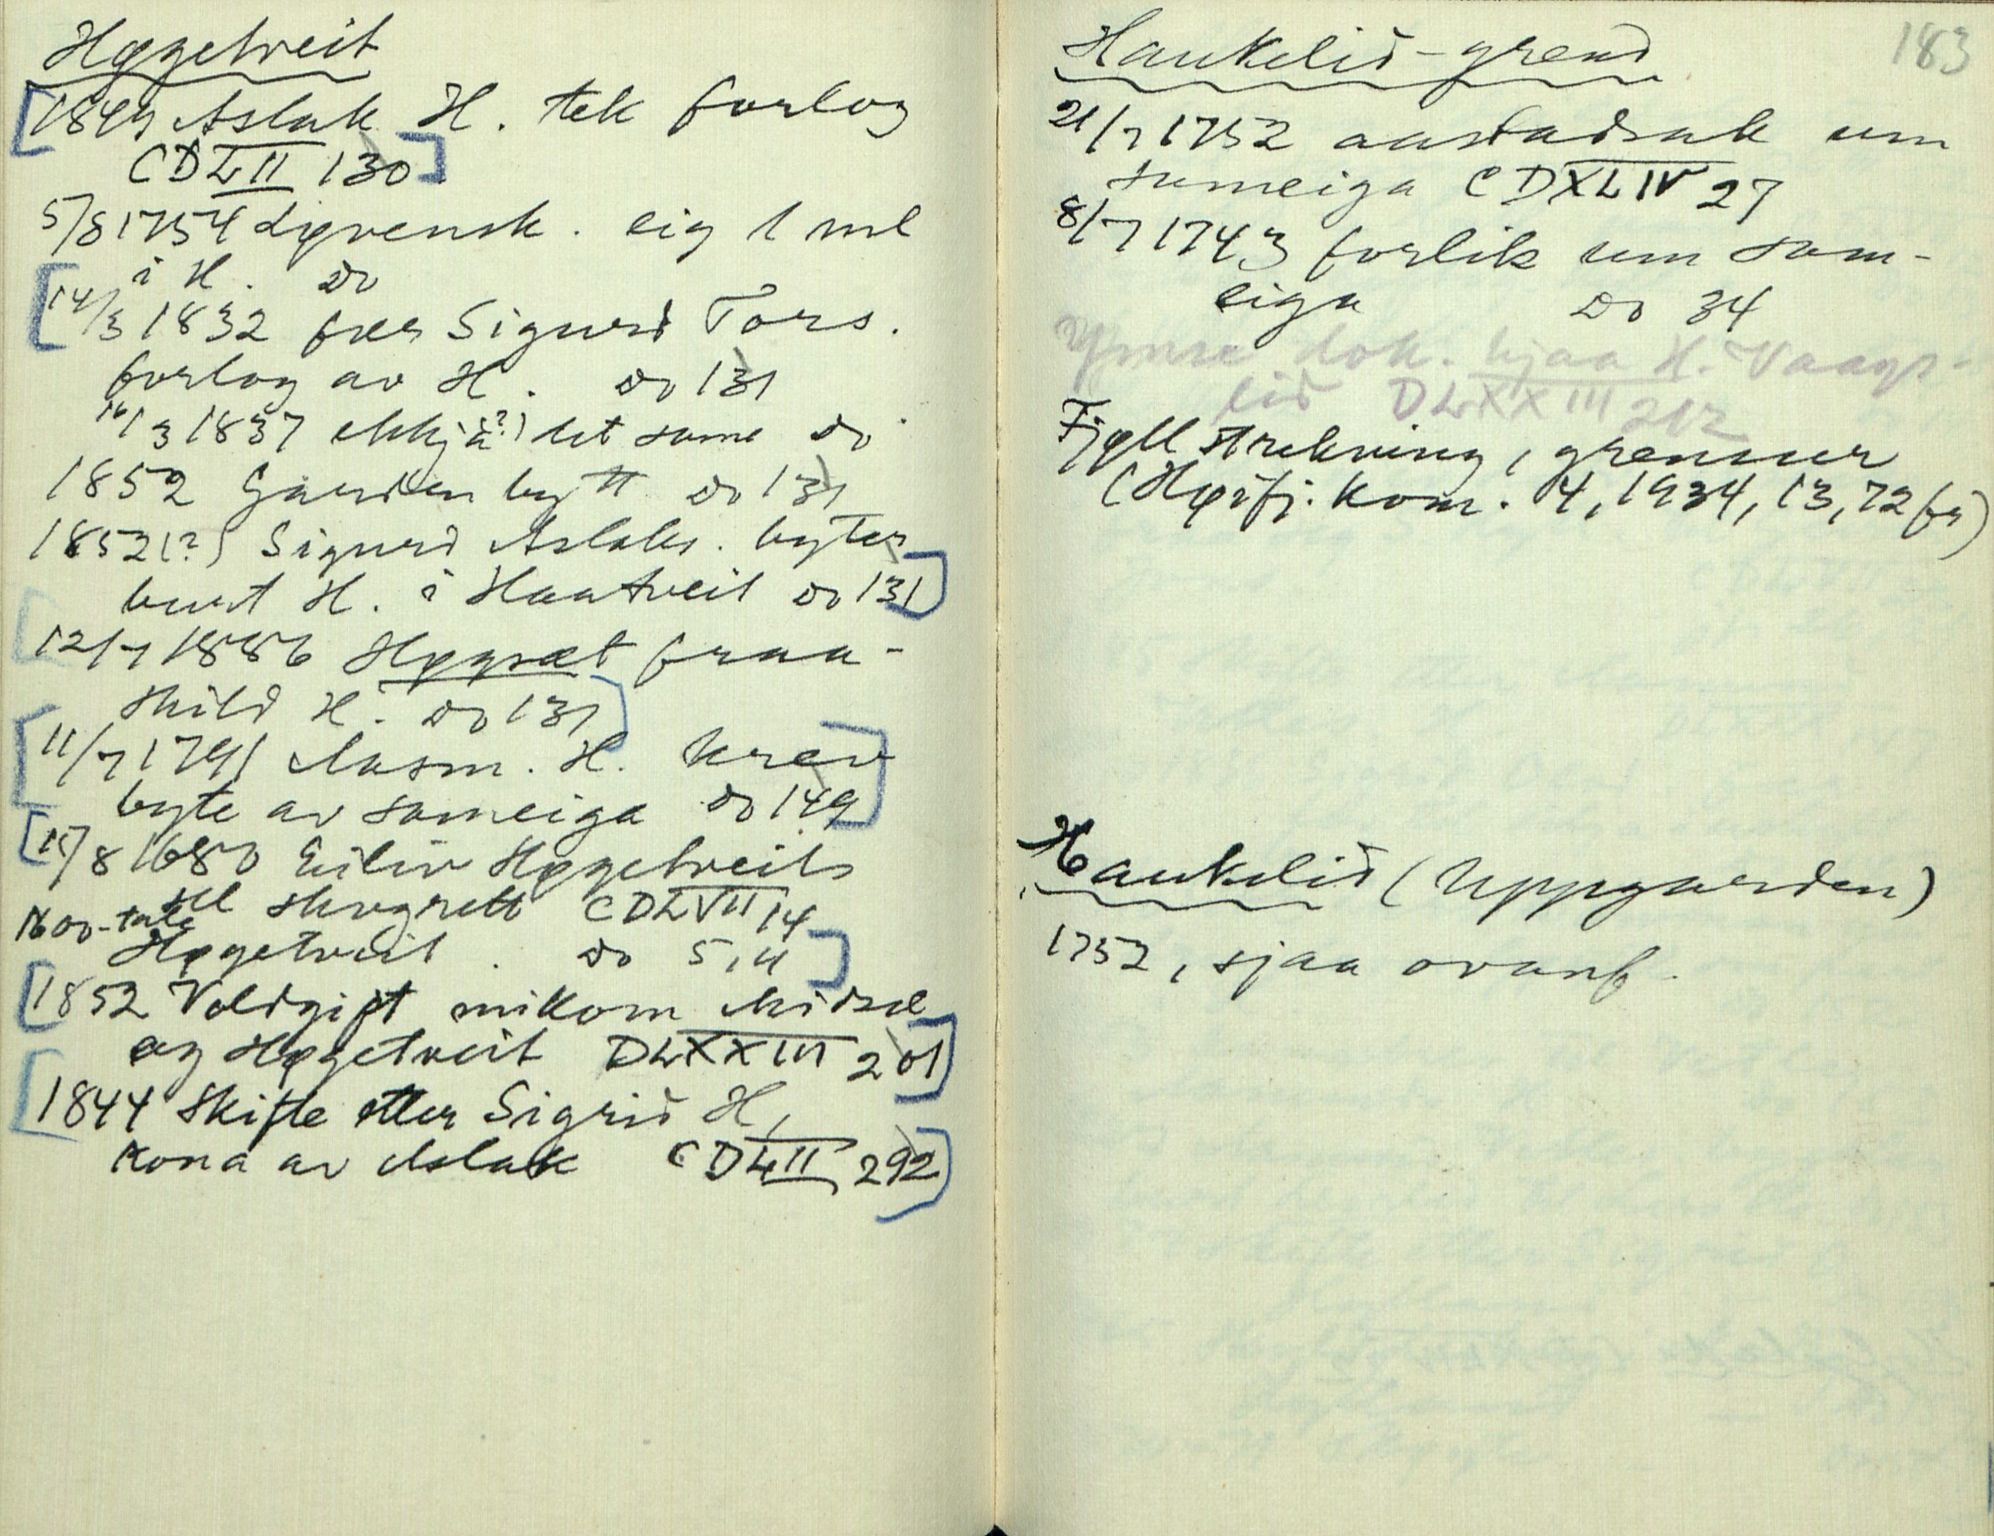 Høgetveit
[1849 Aslak H. tek forlog
CDLII 130]
5/8 1754 Løvensk. eig 1 ml
i H. do
[14/3 1832 fær Sigurd Tors.
forlog av H. do 131
16/3 1837 ekkja(?) det same do
1852 Garden bytt do 131
1852(?) Sigurd Aslaks. byter
burt H. i Haatveit do 131]
12/7 1886 Høgsæt fraa-
skild H. do 131]
[11/7 1791 Aasm. H. krev
byte av sameiga do 149]
[15/8 1680 Eiliv Høgetveits
sel skogrett CDLVII 14
1600-tale
Høgetveit. do 5, 4]
[1852 Voldgift mikom Midsæ
og Høgetveit DLXXIII 201]
[1844 Skifte etter Sigrid H,
kona av Aslak CDLII 292]
183
Haukelid-grend
21/7 1752 aastadsak um
sameiga CDXLIV 27
8/7 1743 forlik um sam-
eiga do 34
Ymse dok. hjaa H. Vaags-
lid DLXXIII 212
Fjell strekning, grensur
(Høifj. kom. 4, 1934, 13, 72 fg)
Haukelid (Uppgarden)
1752, sjaa ovanf.